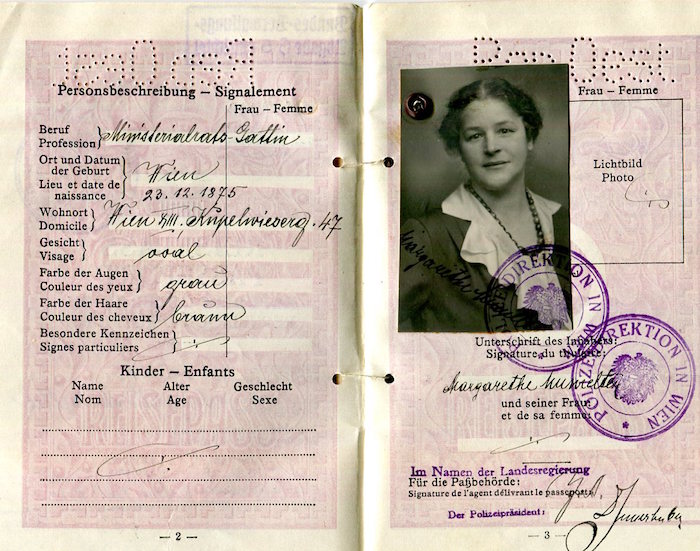 Personsbeschreibung — Signalement
Frau – Femme
Beruf
Profession
Ministerialrats-Gattin
Ort und Datum
der Geburt
Lieu et date de
naissance
Wien
23.12.1875
Wohnort
Domicile
Wien XIII. Kupelwieserg. 47
Gesicht
Visage
oval
Farbe der Augen
Couleur des yeux
grau
Farbe der Haare
Couleur des cheveux
braun
Besondere Kennzeichen
Signes particuliers
Kinder – Enfants
Name Alter Geschlecht
Nom Age Sexe
— 2 —
Frau – Femme
Lichtbild
Photo
Margarethe
POLIZEIDIREKTION IN WIEN
Unterschrift des Inhabers:
Signature du titulaire:
Margarethe
und seiner Frau
et de sa femme
POLIZEIDIREKTION IN WIEN
Im Namen der Landesregierung
Für die Paßbehörde:
Signature de l'agent délivrant le passeport:
Der Polizeipräsident:
— 3 —